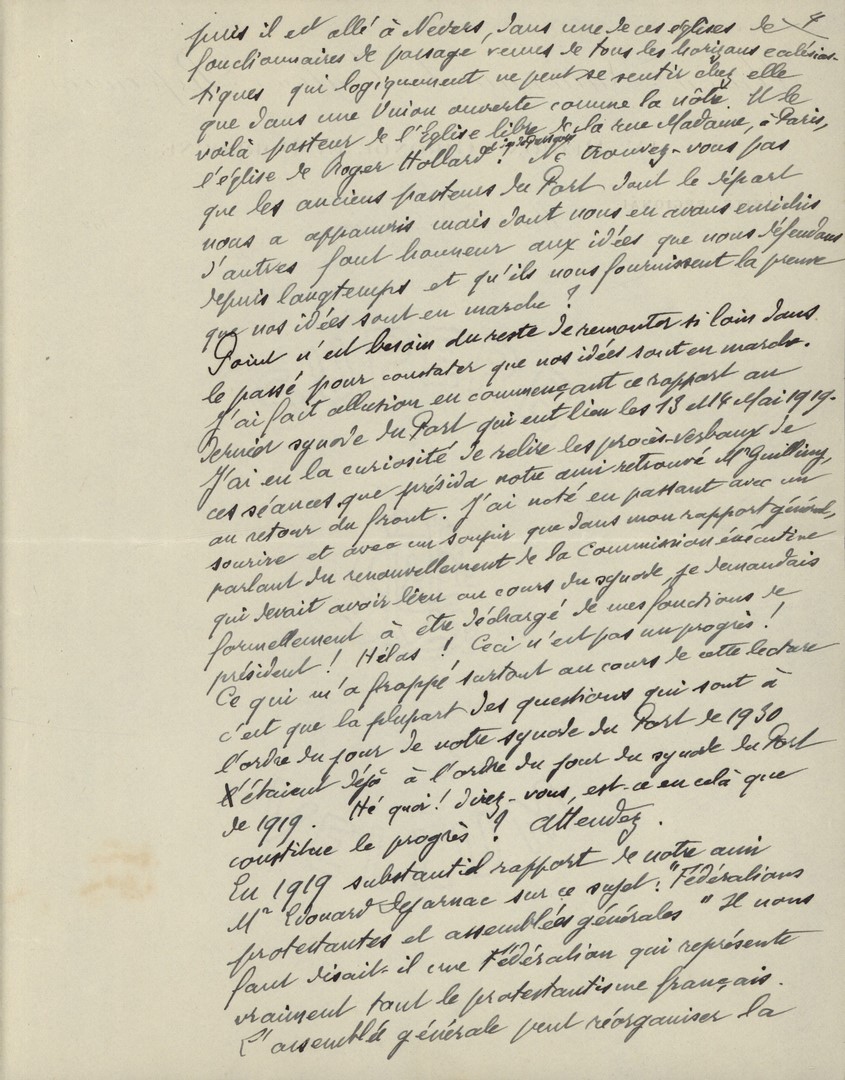 4
puis il est allé à Nevers, dans une de ces églises de
fonctionnaires de passage venus de tous les horizons ecclésias-
tiques qui logiquement ne peut se sentir chez elle
que dans une Union ouverte comme la nôtre. Et le
voilà pasteur de l'Eglise libre de la rue Madame, à Paris,
l'église de Roger Hollard ! Ne trouvez-vous pas
que les anciens pasteurs du Port dont le départ
nous a appauvris mais dont nous en avons enrichis
d'autres font honneur aux idées que nous défendons
depuis longtemps et qu'ils nous fournissent la preuve
que nos idées sont en marche ?
Point n'est besoin du reste de remonter si loin dans
le passé pour constater que nos idées sont en marche.
J'ai fait allusion en commençant ce rapport au
dernier synode du Port qui eut lieu les 13 et 14 Mai 1919.
J'ai eu la curiosité de relire les procès-verbaux de
ces séances que présida notre ami retrouvé Mr
au retour du front. J'ai noté en passant avec un
sourire et avec un soupir que dans mon rapport général,
parlant du renouvellement de la Commission exécutive
qui devait avoir lieu au cours du synode, je demandais
formellement à être déchargé de mes fonctions de
président ! Hélas ! Ceci n'est pas un progrès !
Ce qui m'a frappé surtout au cours de cette lecture
c'est que la plupart des questions qui sont à
l'ordre du jour de notre synode du Port de 1930
étaient déjà à l'ordre du jour du synode du Port
de 1919. Hé quoi ! direz-vous, est-ce en cela que
constitue le progrès ? Attendez.
En 1919 substantiel rapport de notre ami
Mr Edouard Dejarnac sur ce sujet : "Fédérations
protestantes et assemblées générales" Il nous
faut disait-il une Fédération qui représente
vraiment tout le protestantisme français.
L'assemblée générale peut réorganiser la